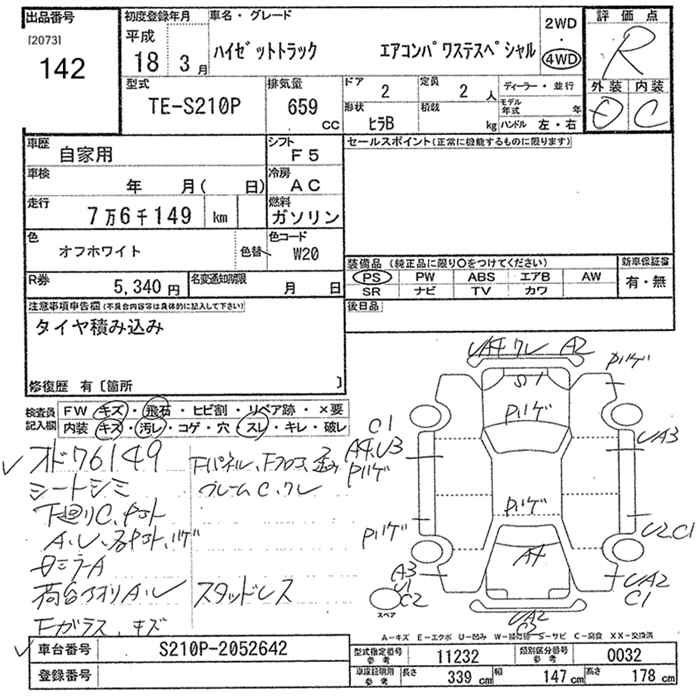 出品番号 初度登録年月 車名・グレード 2WD 評価点
[2073] 平成 ・ R
142 18 3月 ハイゼットトラック エアコンパワステスペシャル 4WD
型式 排気量 ドア 定員 ディーラー・並行 外装 内装
TE-S210P 659 cc 2 2 人 モデル年式 年 C
形状 積載 ヒラB kg ハンドル 左・右
車歴 自家用 シフト F5 セールスポイント(正常に機能するものに限ります)
車検 年 月( 日) 冷房 AC
走行 7万6千149 km 燃料 ガソリン
色 オフホワイト 色替 色コード W20
装備品(純正品に限り○をつけてください) 新車保証書
R券 5,340円 名変通知期限 月 日 PS PW ABS エアB AW 有・無
SR ナビ TV カワ
注意事項申告欄(不具合内容等は具体的に記入して下さい) 後日品
タイヤ積み込み
修復歴 有〔箇所 〕
検査員 FW キズ・飛石・ヒビ割・リペア跡・×要
記入欄 内装 キズ・汚レ・コゲ・穴・スレ・キレ・破レ
オド76149
シートシミ
下廻りC,
A,U,
ミラーA
荷台アオリA,U スタッドレス
Fガラス,キズ
UA4 A2
S1
C1
A4,U3
UA3
U2,C1
A4
A3
U1
C2
UA2
C1
UA2
スペア
A-キズ E-エクボ U-凹み W-補修跡 S-サビ C-腐食 XX-交換済
車台番号 S210P-2052642 型式指定番号 参考 11232 類別区分番号 参考 0032
登録番号 車庫証明用 参考 長さ 339 cm 幅 147 cm 高さ 178 cm